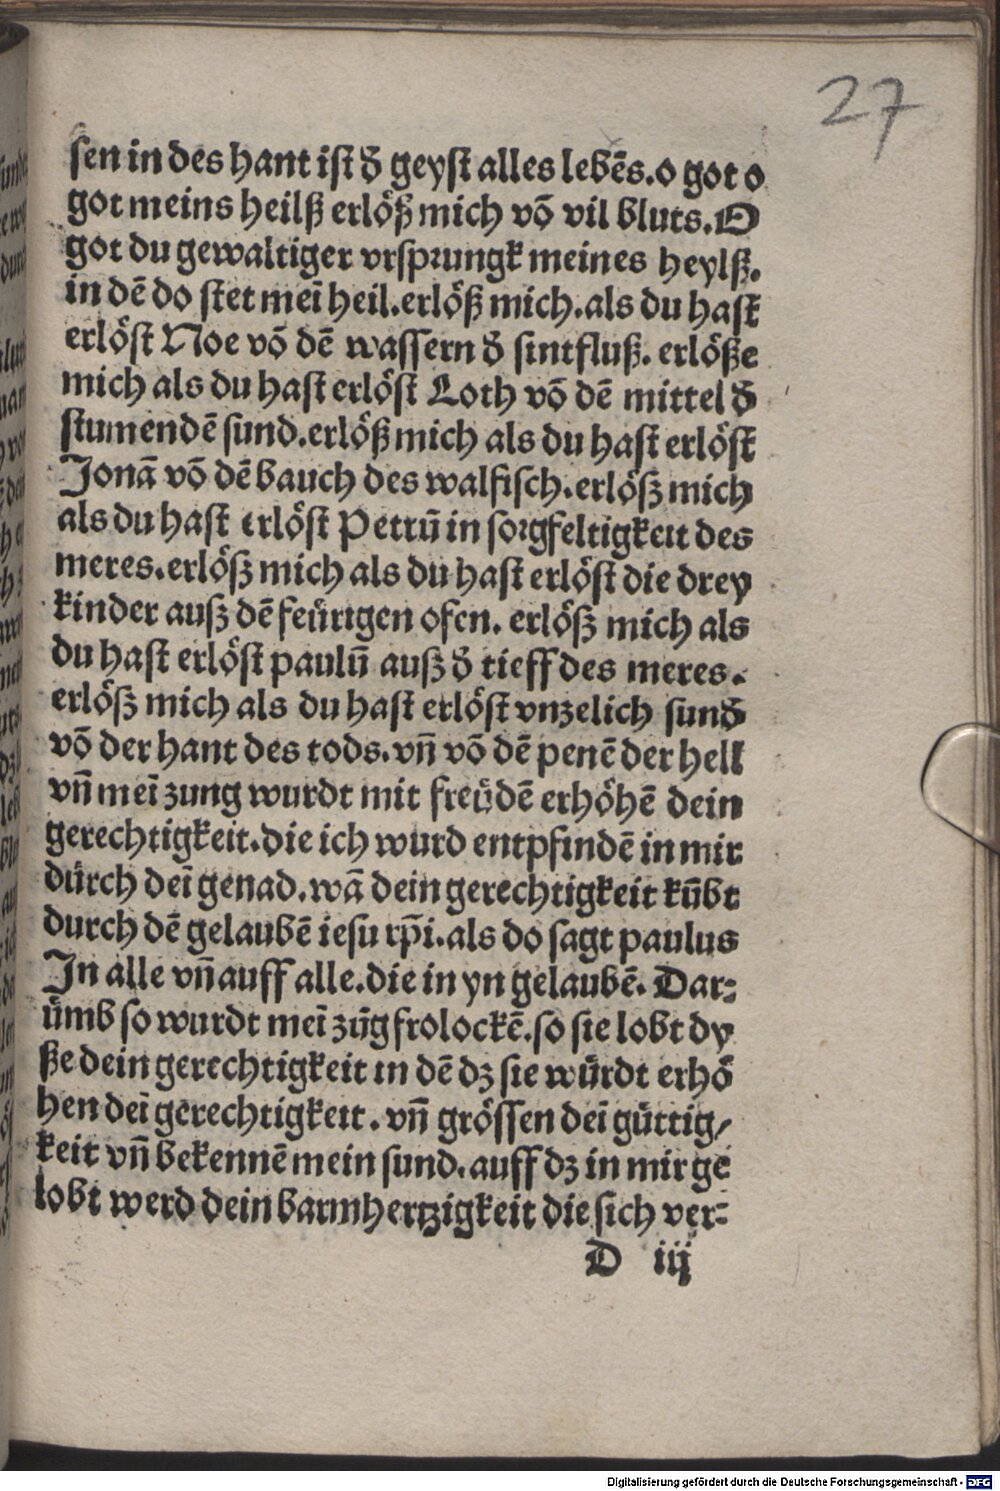 27
sen in des hant ist đ geyst alles lebēs.o got o
got meins heilß erlöß mich vō vil bluts.O
got du gewaltiger vrsprungk meines heylß.
in dē do stet meī heil.erlöß mich.als du hast
erlöst Noe vō dē wassern đ sintfluß. erlöße
mich als du hast erlöst Loth vō dē mittel đ
stumendē sund.erlöß mich als du hast erlöst
Jonā vō dē bauch des walfisch.erlösz mich
als du hast erlöst Petrū in sorgfeltigkeit des
meres.erlösz mich als du hast erlöst die drey
kinder ausz dē feürigen ofen. erlösz mich als
du hast erlöst paulū ausz đ tieff des meres.
erlösz mich als du hast erlöst vnzelich sunđ
vō der hant des tods.vñ vō dē penē der hell
vñ meī zung wurdt mit freüdē erhöhē dein
gerechtigkeit.die ich wurd entpfindē in mir
dürch deī genad.wā dein gerechtigkeit kūbt
durch dē gelaubē iesu xp̄i.als do sagt paulus
In alle vñ auff alle.die in yn gelaubē. Dar⸗
ümb so wurdt meī zūg frolockē.so sie lobt dy
ße dein gerechtigkeit in dē dz sie würdt erhö
hen deī gerechtigkeit. vñ grössen deī güttig/
keit vñ bekennē mein sund.auff dz in mir ge
lobt werd dein barmhertzigkeit die sich ver⸗
D iij
Digitalisierung gefördert durch die Deutsche Forschungsgemeinschaft - DFG